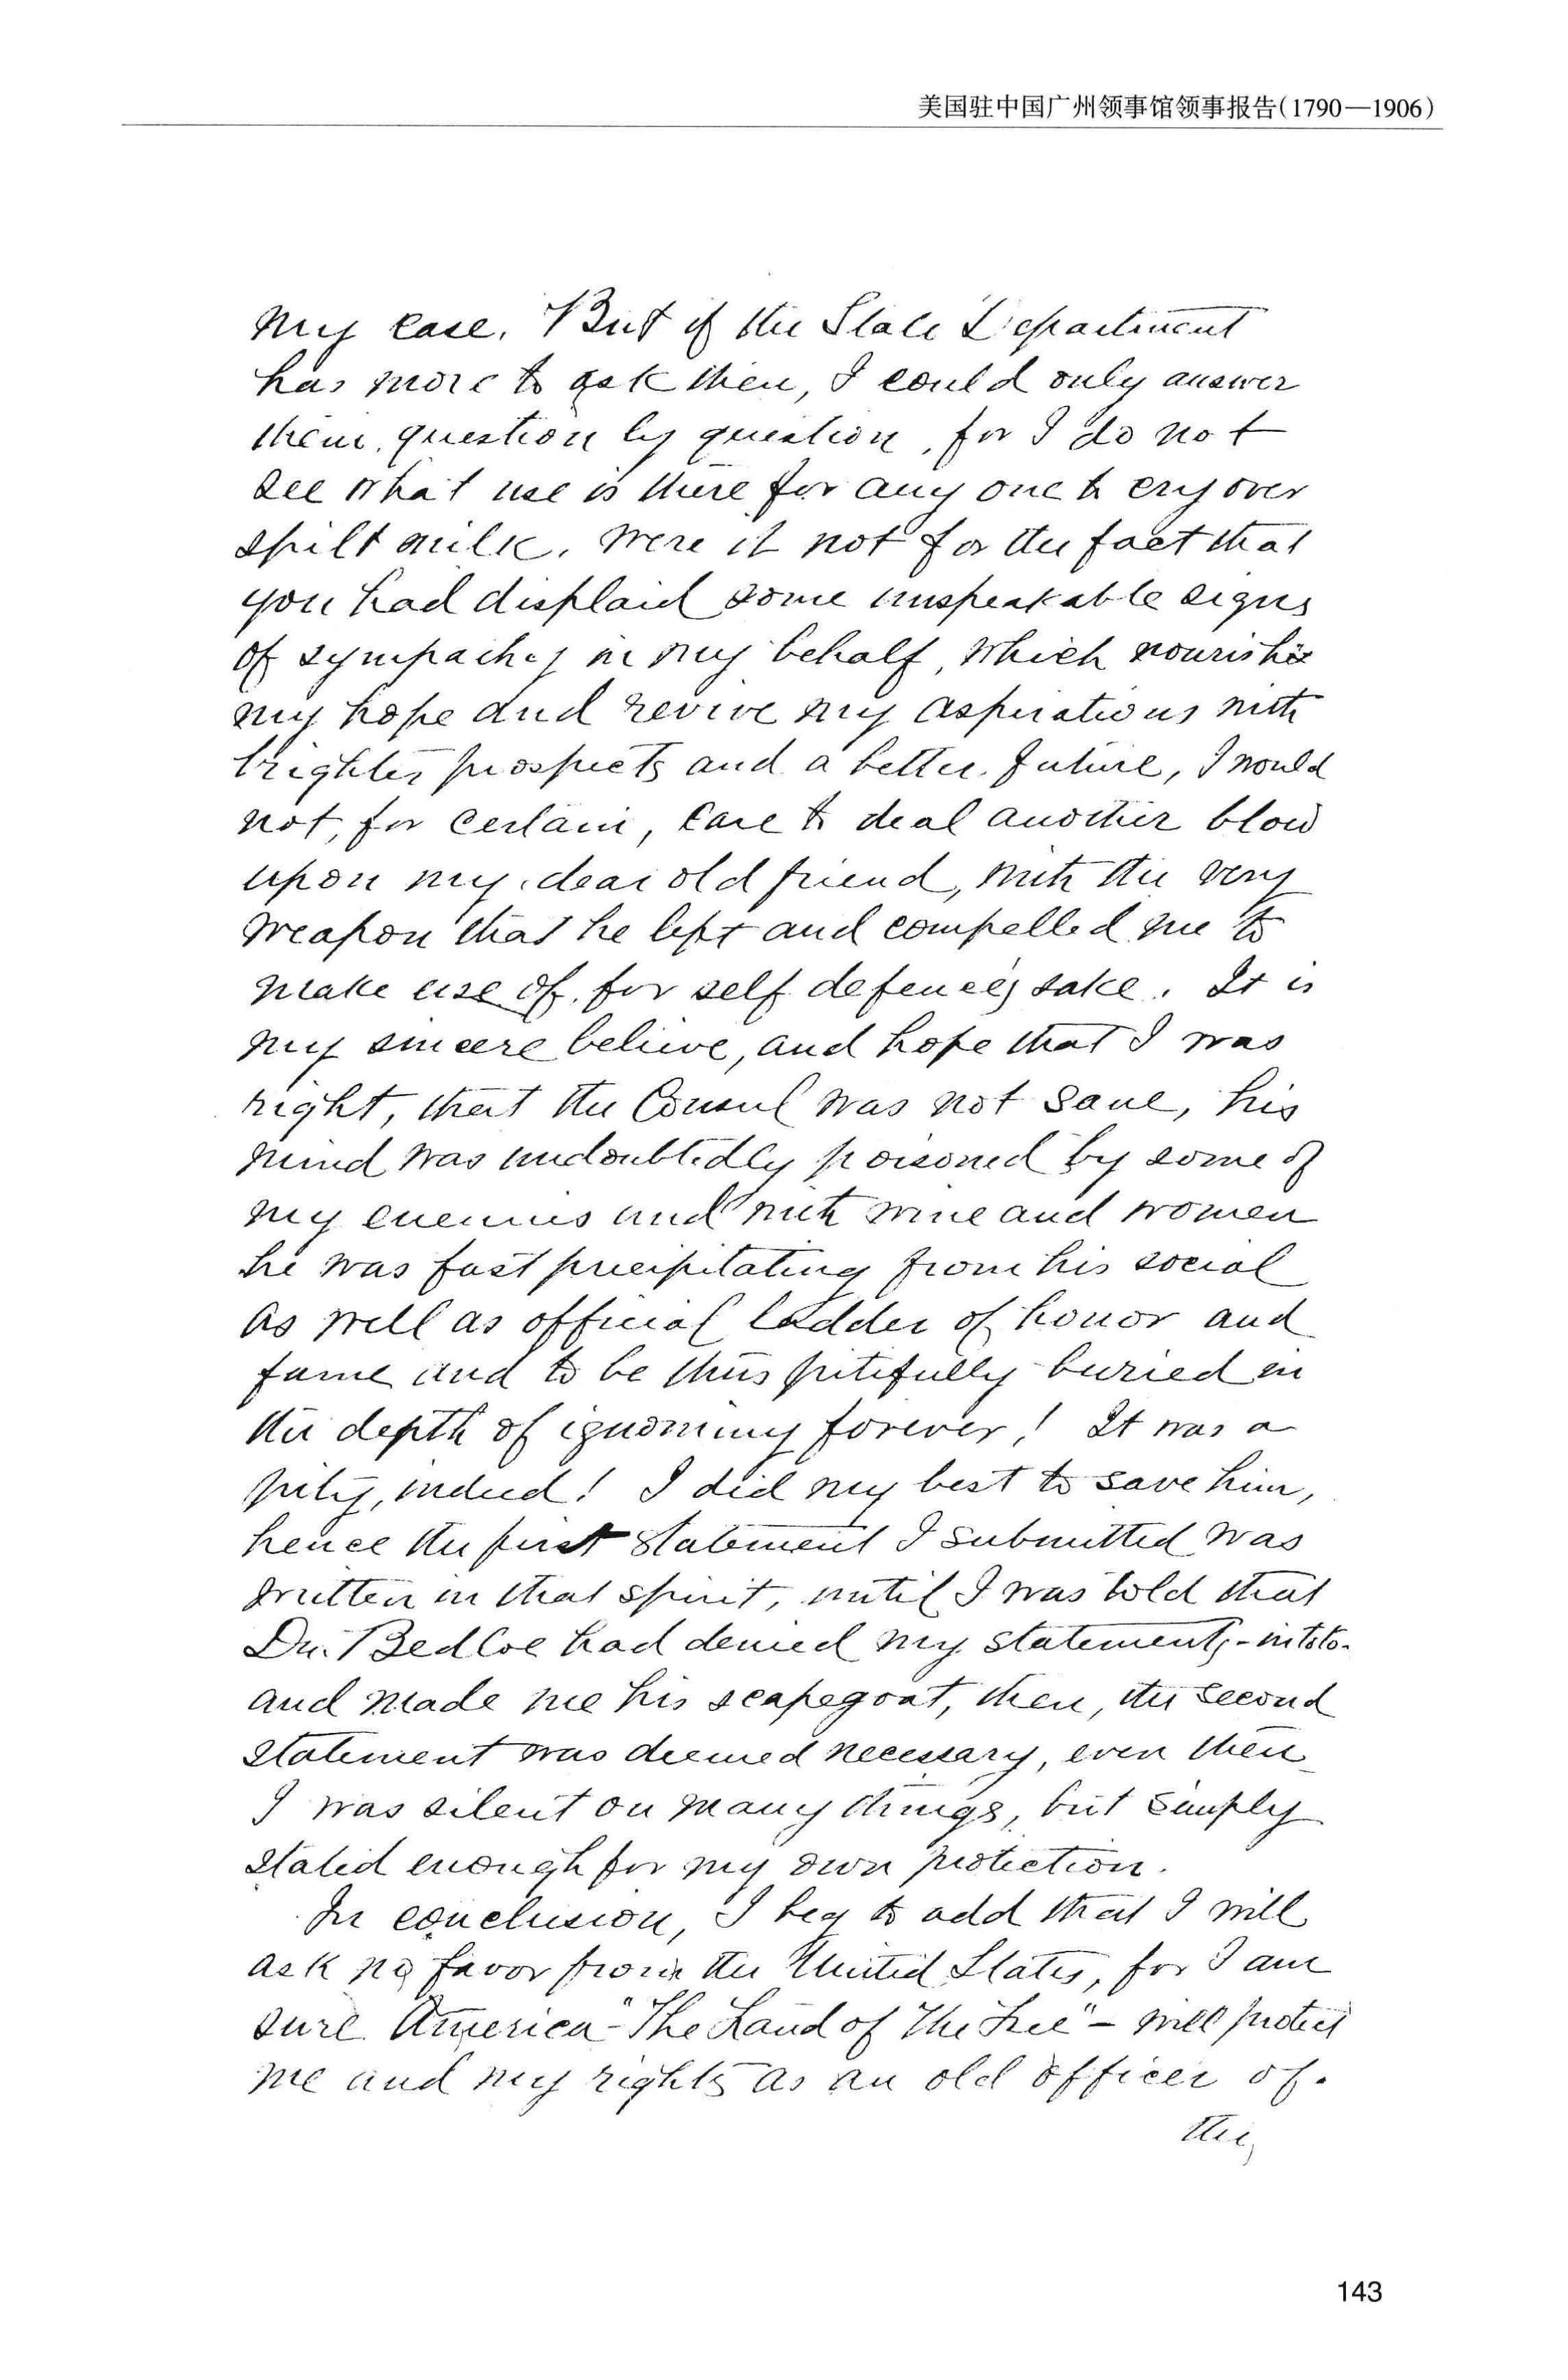 美国驻中国广州领事馆领事报告(1790—1906)
my case. But if the State Department
has more to ask then, I could only answer
them, question by question, for I do not
see what use is there for any one to cry over
spilt milk. Were it not for the fact that
you had displaid some unspeakable signs
of sympathy in my behalf, which nourishes
my hope and revive my aspirations with
brighter prospects and a better future, I would
not, for certain, care to deal another blow
upon my dear old friend, with the very
weapon that he left and compelled me to
make use of, for self defence's sake. It is
my sincere believe, and hope that I was
right, that the Consul was not sane, his
mind was undoubtedly poisoned by some of
my enemies and with wine and women
he was fast precipitating from his social
as well as official ladder of honor and
fame and to be thus pitifully buried in
the depth of ignominy forever! It was a
pity, indeed! I did my best to save him,
hence the first statement I submitted was
written in that spirit, until I was told that
Dr. Bedloe had denied my statements,-in toto-
and made me his scapegoat, then, the second
statement was deemed necessary, even then
I was silent on many things, but simply
stated enough for my own protection.
In conclusion, I beg to add that I will
ask no favor from the United States, for I am
sure America-"The Land of The Free"- will protect
me and my rights as an old officer of.
the
143